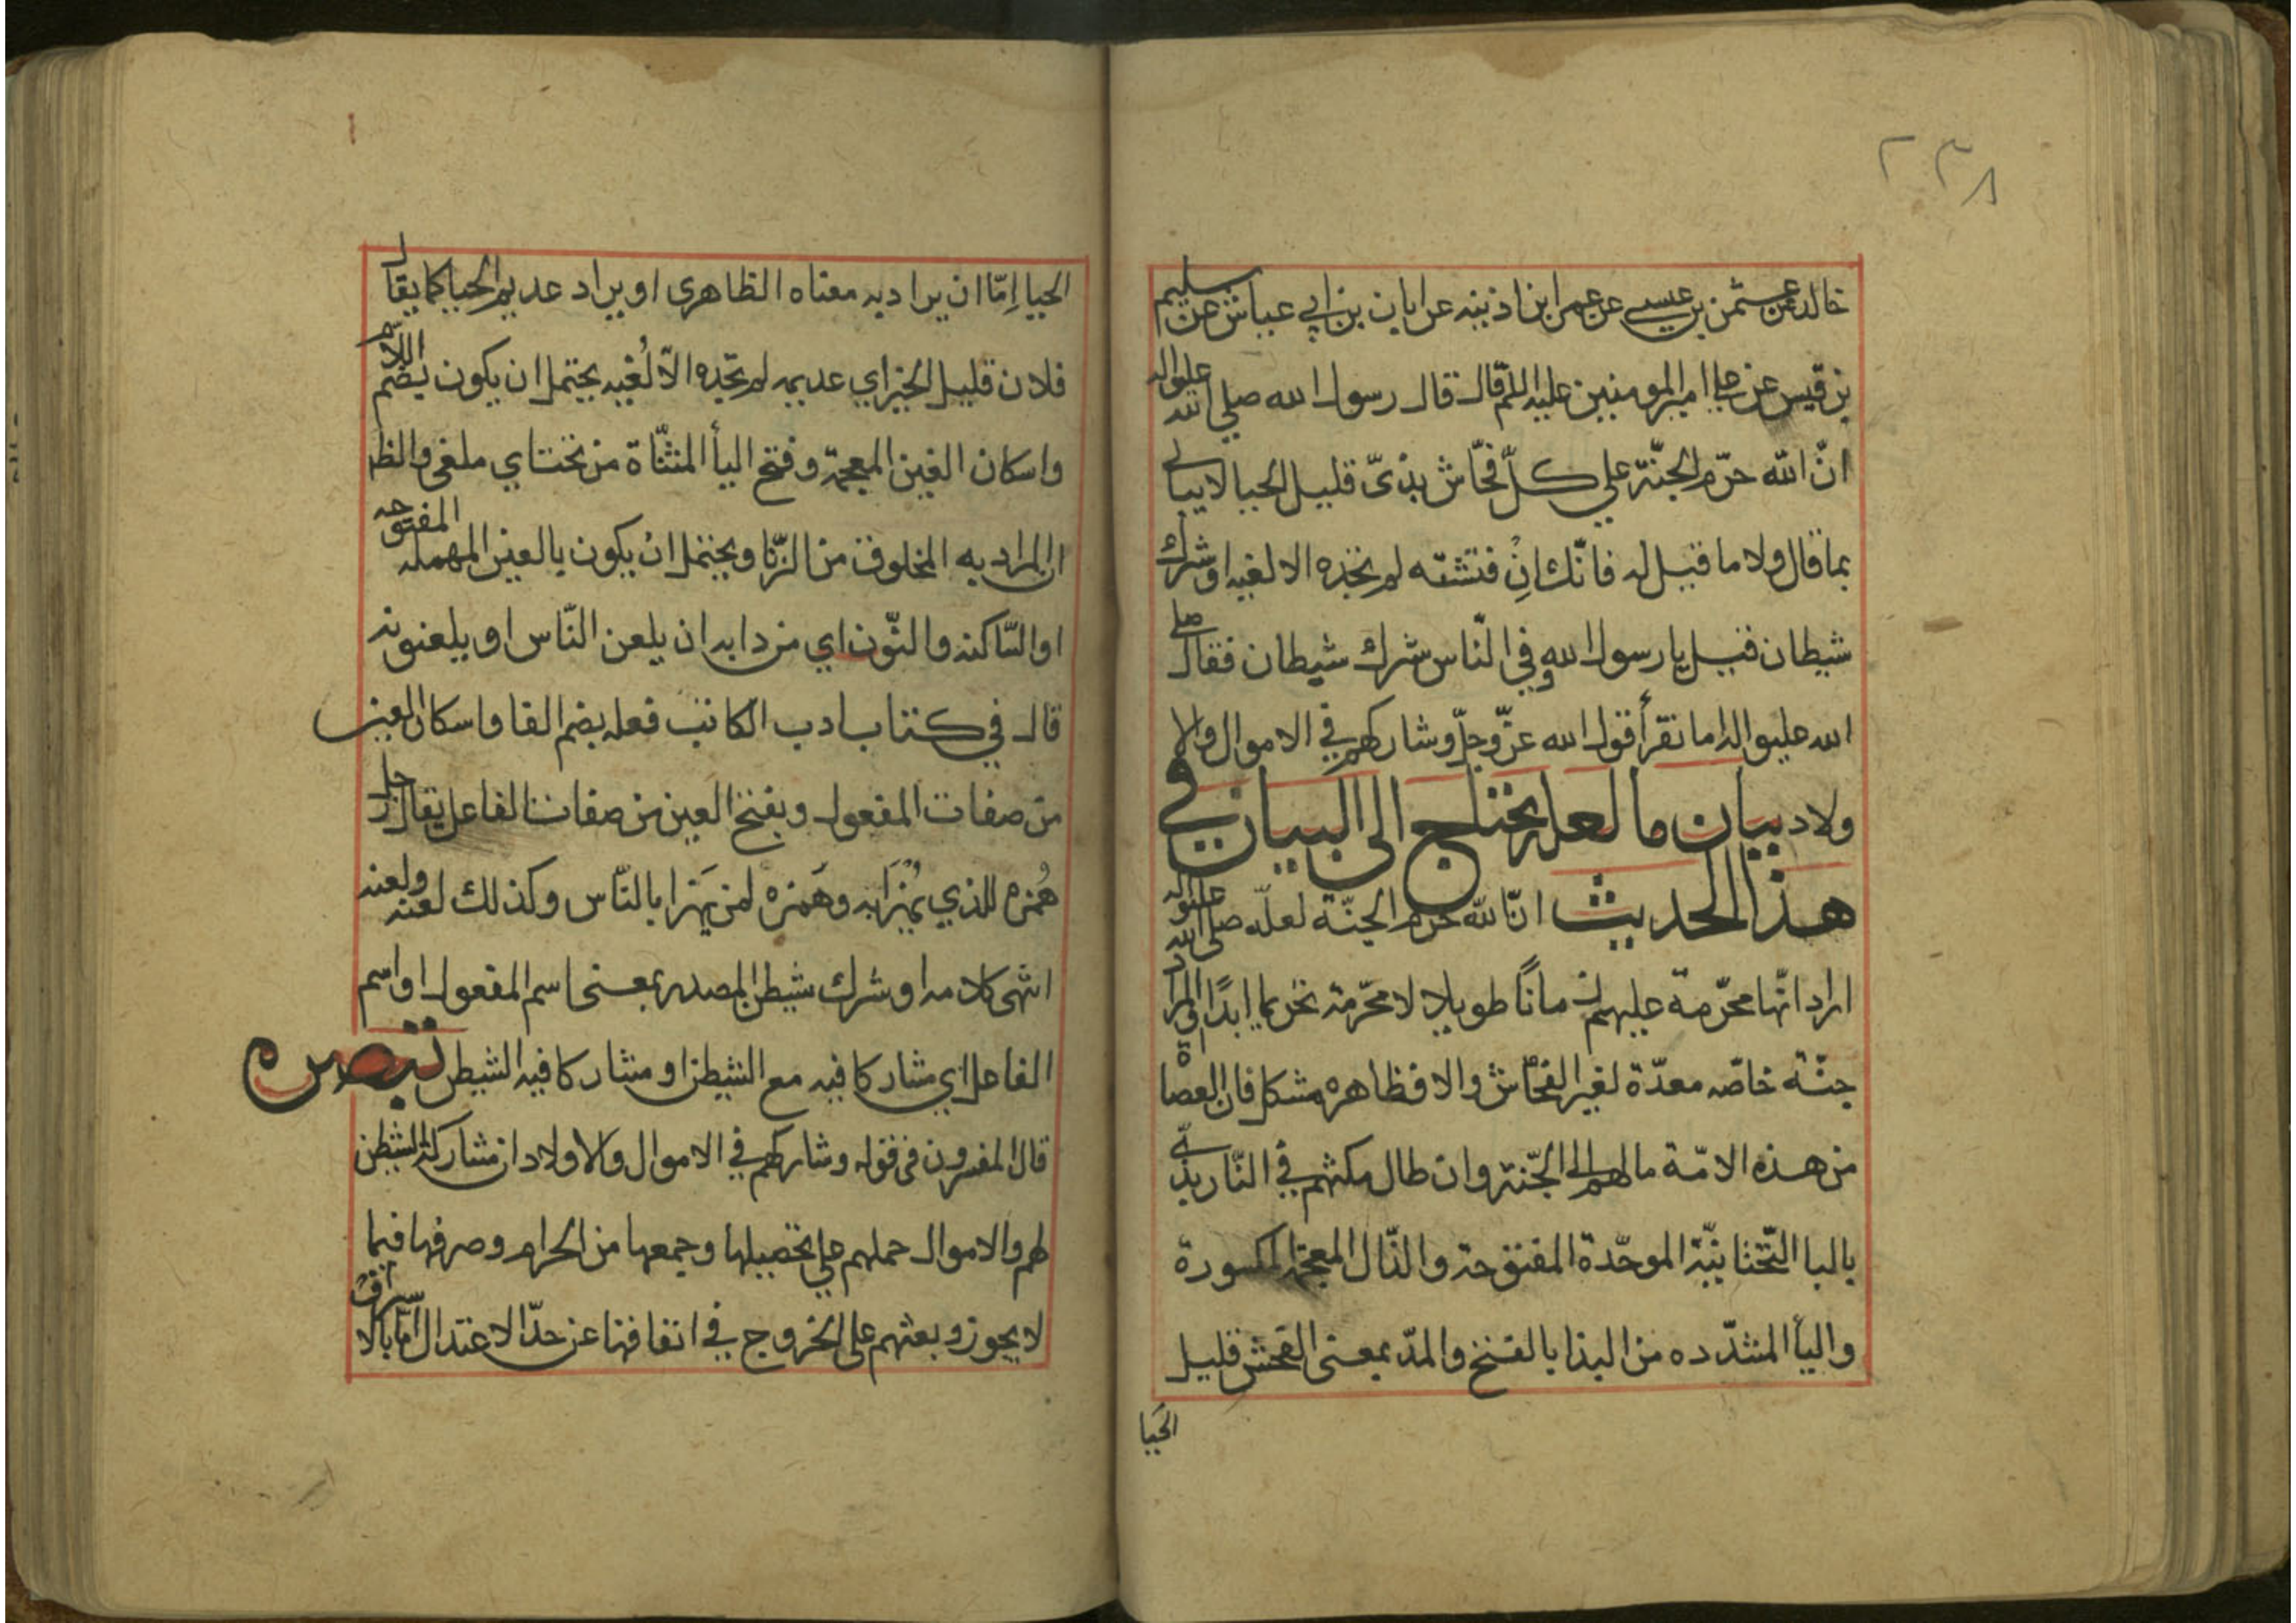 ٢٣٨
خالد عن عثمن بن عيسى عن عمر ابن اذينه عن ابان بن ابي عياش عن سليم
بن قيس عن علي امير المومنين عليه اللم قال قال رسول الله صلى الله عليه واله
انّ الله حرّم الجنّة على كلّ فحّاش بذىّ قليل الحيا لا يبالى
بما قال ولا ما قيل له فانّك اِنْ فتشته لم تجده الا لغيه او شرك
شيطان فقيل يا رسول الله وفي النّاس شرك شيطان فقال صلى
الله عليه واله اما تقرأ قول الله عزّ وجلّ وشاركهم في الاموال والا
ولاد بيان ما لعله يحتاج الى البيان في
هذا الحديث انّ الله حرّم الجنّة لعلّه صلى الله عليه واله
اراد انّها محرّمة عليهم زمانًا طويلا لا محرّمة تحريما ابدًا او المراد
جنّة خاصّه معدّة لغير الفحّاش والا فظاهره مشكل فان العصاة
من هذه الامّة مالهم الى الجنّة وان طال مكثهم في النّار بذىّ
بالبا التّحتانيّة الموحّدة المفتوحة والذّال المعجمة المكسورة
واليأ المشدّده من البذا بالفتح والمدّ بمعنى الفحش قليل
الحَيا
الحيا اِمّا ان يراد به معناه الظاهرى او يراد عديم الحيا كما يقال
فلان قليل الخير اي عديمه لم تجده الاّ لُغيه يحتمل ان يكون بضم اللّام
واسكان الغين المعجمة وفتح اليأ المثنّاة من تحت اي ملغى والظ
ان المراد به المخلوق من الزّنا ويحتمل ان يكون بالعين المهمله المفتوحه
او السّاكنه والنّون اي من دابه ان يلعن النّاس او يلعنونه
قال في كتاب ادب الكاتب فعله بضم الفا واسكان العين
من صفات المفعول وبفتح العين من صفات الفاعل يقال رجل
هُمْزه للذي يُهْزَأ به وهُمَزه لمن يَهزا بالنّاس وكذلك لعنه ولعنه
انتهى كلامه او شرك شيطن المصدر بمعنى اسم المفعول او اسم
الفاعل اي مشاركا فيه مع الشيطن او مشاركا فيه الشيطن تبصره
قال المفسرون فى قوله وشاركهم في الاموال والاولاد ان مشاركة الشيطن
لهم والاموال حملهم على تحصيلها وجمعها من الحرام وصرفها فيما
لا يجوز وبعثهم على الخروج في انفاقها عن حدّ الاعتدال امّا بالاسراف